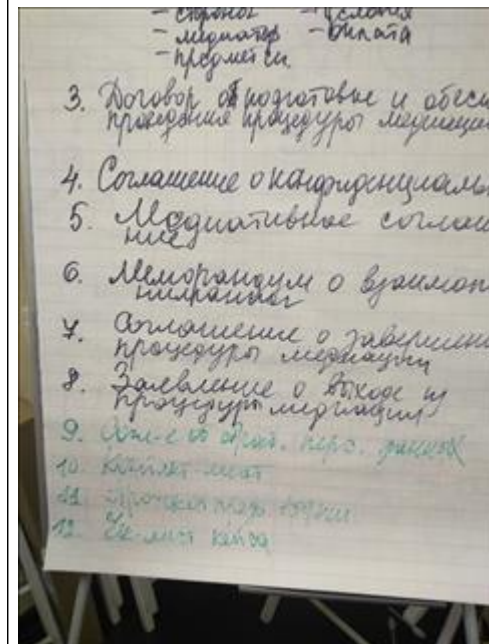 - стороны - условия
- медиатор - оплата
- предмет сп.
3. Договор о подготовке и обесп
проведения процедуры медиации
4. Соглашение о конфиденциаль
5. Медиативное соглаш
ние
6. Меморандум о взаимопо
нимании
7. Соглашение о завершени
процедуры медиации
8. Заявление о выходе из
процедуры медиации
9. Согл-е об обраб. перс. данных
10. Контакт-лист
11.
12. Чек-лист кейса